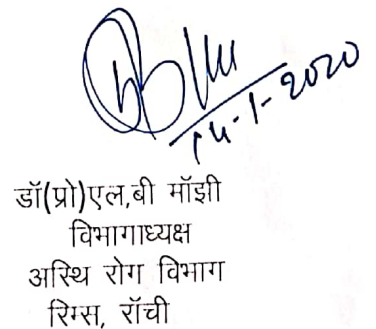 14-1-2020
डॉ(प्रो)एल,बी मॉझी
विभागाध्यक्ष
अस्थि रोग विभाग
रिम्स, रॉची